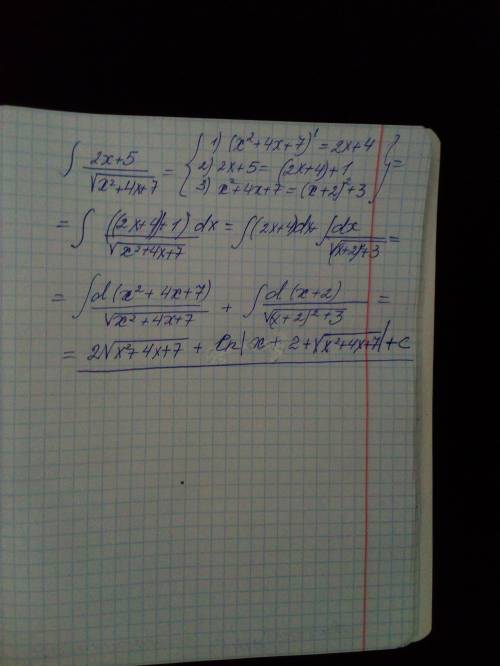 ∫ (2x+5)/√(x²+4x+7) = { 1) (x²+4x+7)' = 2x+4
2) 2x+5 = (2x+4)+1
3) x²+4x+7 = (x+2)²+3 } =
= ∫ ((2x+4)+1)dx/√(x²+4x+7) = ∫(2x+4)dx + ∫ dx/√((x+2)²+3) =
= ∫ d(x²+4x+7)/√(x²+4x+7) + ∫ d(x+2)/√((x+2)²+3) =
= 2√(x²+4x+7) + ln|x+2+√(x²+4x+7)|+C